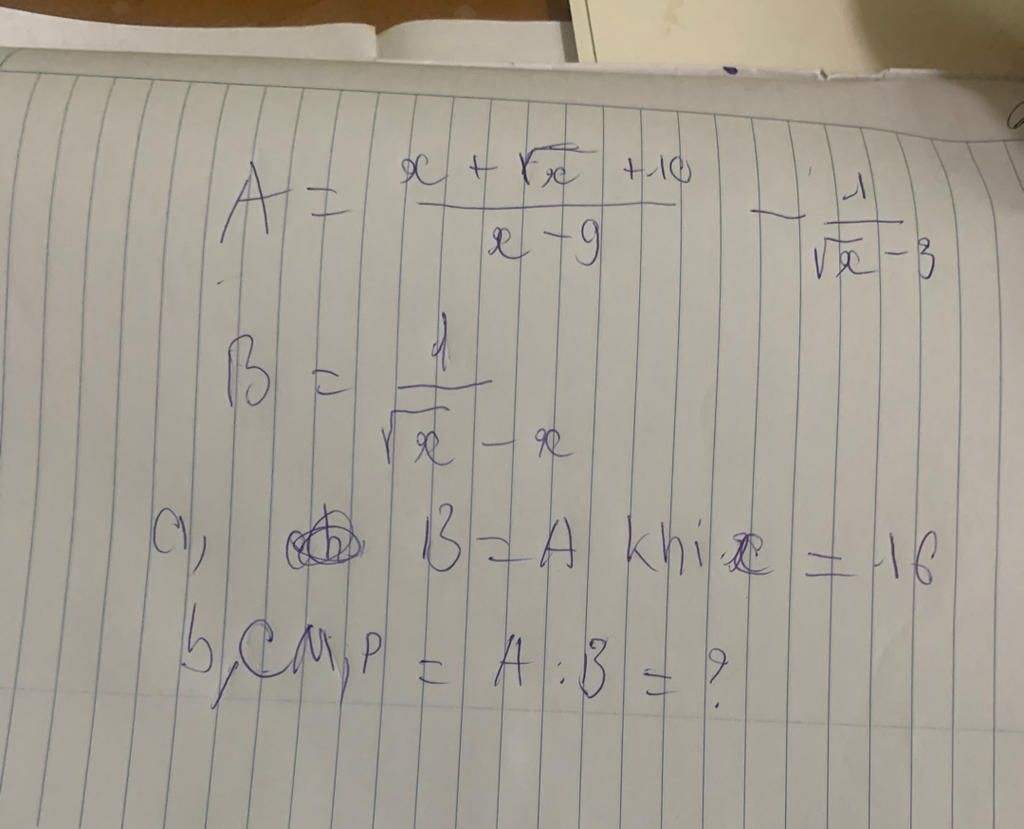 A = \frac{x + \sqrt{x} + 10}{x - 9} - \frac{1}{\sqrt{x} - 3}
B = \frac{1}{\sqrt{x} - x}
a, B = A khi x = 16
b, CM, P = A : B = ?